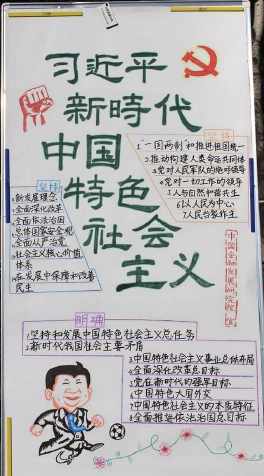 习近平
新時代
中国
特色
社会
主义
坚持
1."一国两制"和推进祖国统一
2.推动构建人类命运共同体
3.党对人民军队的绝对领导
4.党对一切工作的领导
5.人与自然和谐共生
6.以人民为中心
7.人民当家作主
坚持
1.新发展理念
2.全面深化改革
3.全面依法治国
4.总体国家安全观
5.全面从严治党
6.社会主义核心价值
体系
7.在发展中保障和改善
民生
明确
1.坚持和发展中国特色社会主义总任务
2.新时代我国社会主要矛盾
3.中国特色社会主义事业总体布局
4.全面深化改革总目标
5.党在新时代的强军目标
6.中国特色大国外交
7.中国特色社会主义的本质特征
8.全面推进依法治国总目标